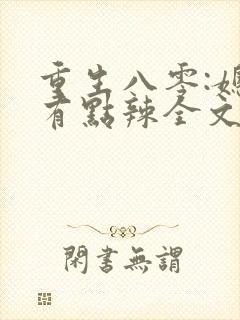 重生八零:媳
有點辣全文
閑書無謂